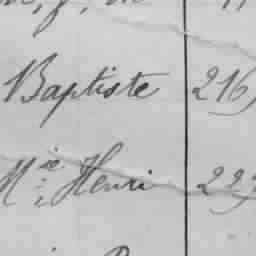 Baptiste 216
Mie Henri 22